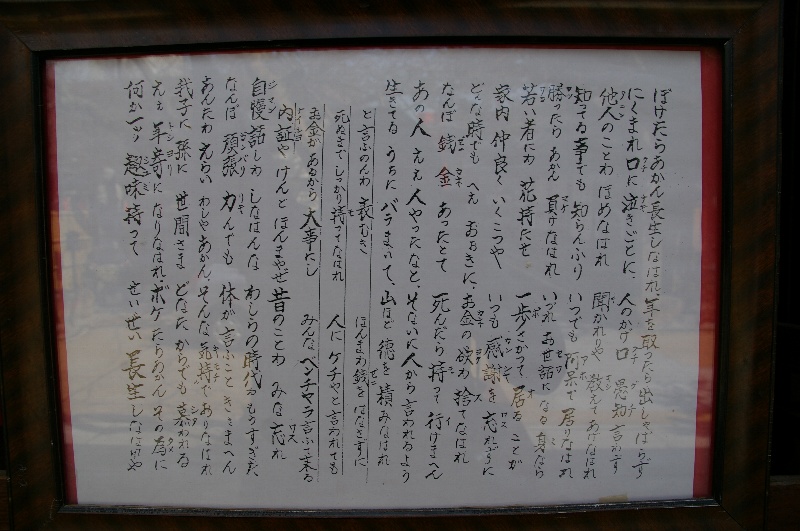 ぼけたらあかん長生しなはれ、年を取ったら出しゃばらず
にくまれ口に泣きごとに、人のかげ口 愚知言わず
他人のことわ ほめなはれ 聞かれりゃ 教えてあげなはれ
知ってる事でも 知らんふり いつでも 阿呆で 居りなはれ
勝ったらあかん 負けなはれ いづれ お世話に なる 身なら
若い者にわ 花持たせ 一歩さがって 居る ことが
家内 仲良く いくこつや いつも 感謝を 忘れずに
どんな時でも へえ おおきに、お金の欲わ 捨てなはれ
なんぼ 銭 金 あったとて 死んだら 持って 行けまへん
あの人 ええ 人やったなと、そないに人から言われるよう
生きてる うちに バラまいて、山ほど 徳を 積みなはれ
と言ふのんわ 表むき ほんまわ 銭を はなさずに
死ぬまで しっかり 持ってなはれ 人に ケチやと言われても
お金が あるから 大事にし みんな ベンチャラ 言ふて来る
内証や けんど ほんまやぜ 昔のことわ みな 忘れ
自慢話しわ しなはんな わしらの時代わ もうすぎた
なんぼ 頑張り 力んでも 体が言ふこと ききまへん
あんたわ えらい わしやあかん、そんな 気持で ありなはれ
我子に 孫に 世間さま どなた からでも 慕われる
ええ 年寄に なりなはれ、ボケたらあかん その為に
何か一ツ 趣味 持って せいぜい 長生 しなはれや